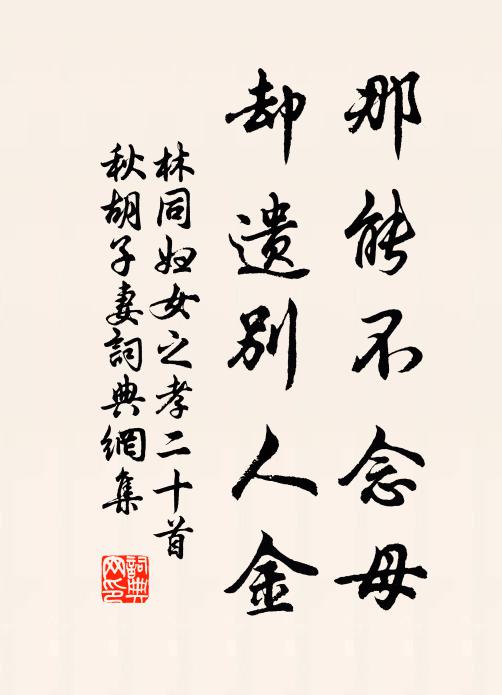 那能不念母
却遗别人金
林同妇女之孝二十首
秋胡子妻詞典網集
詞典网印